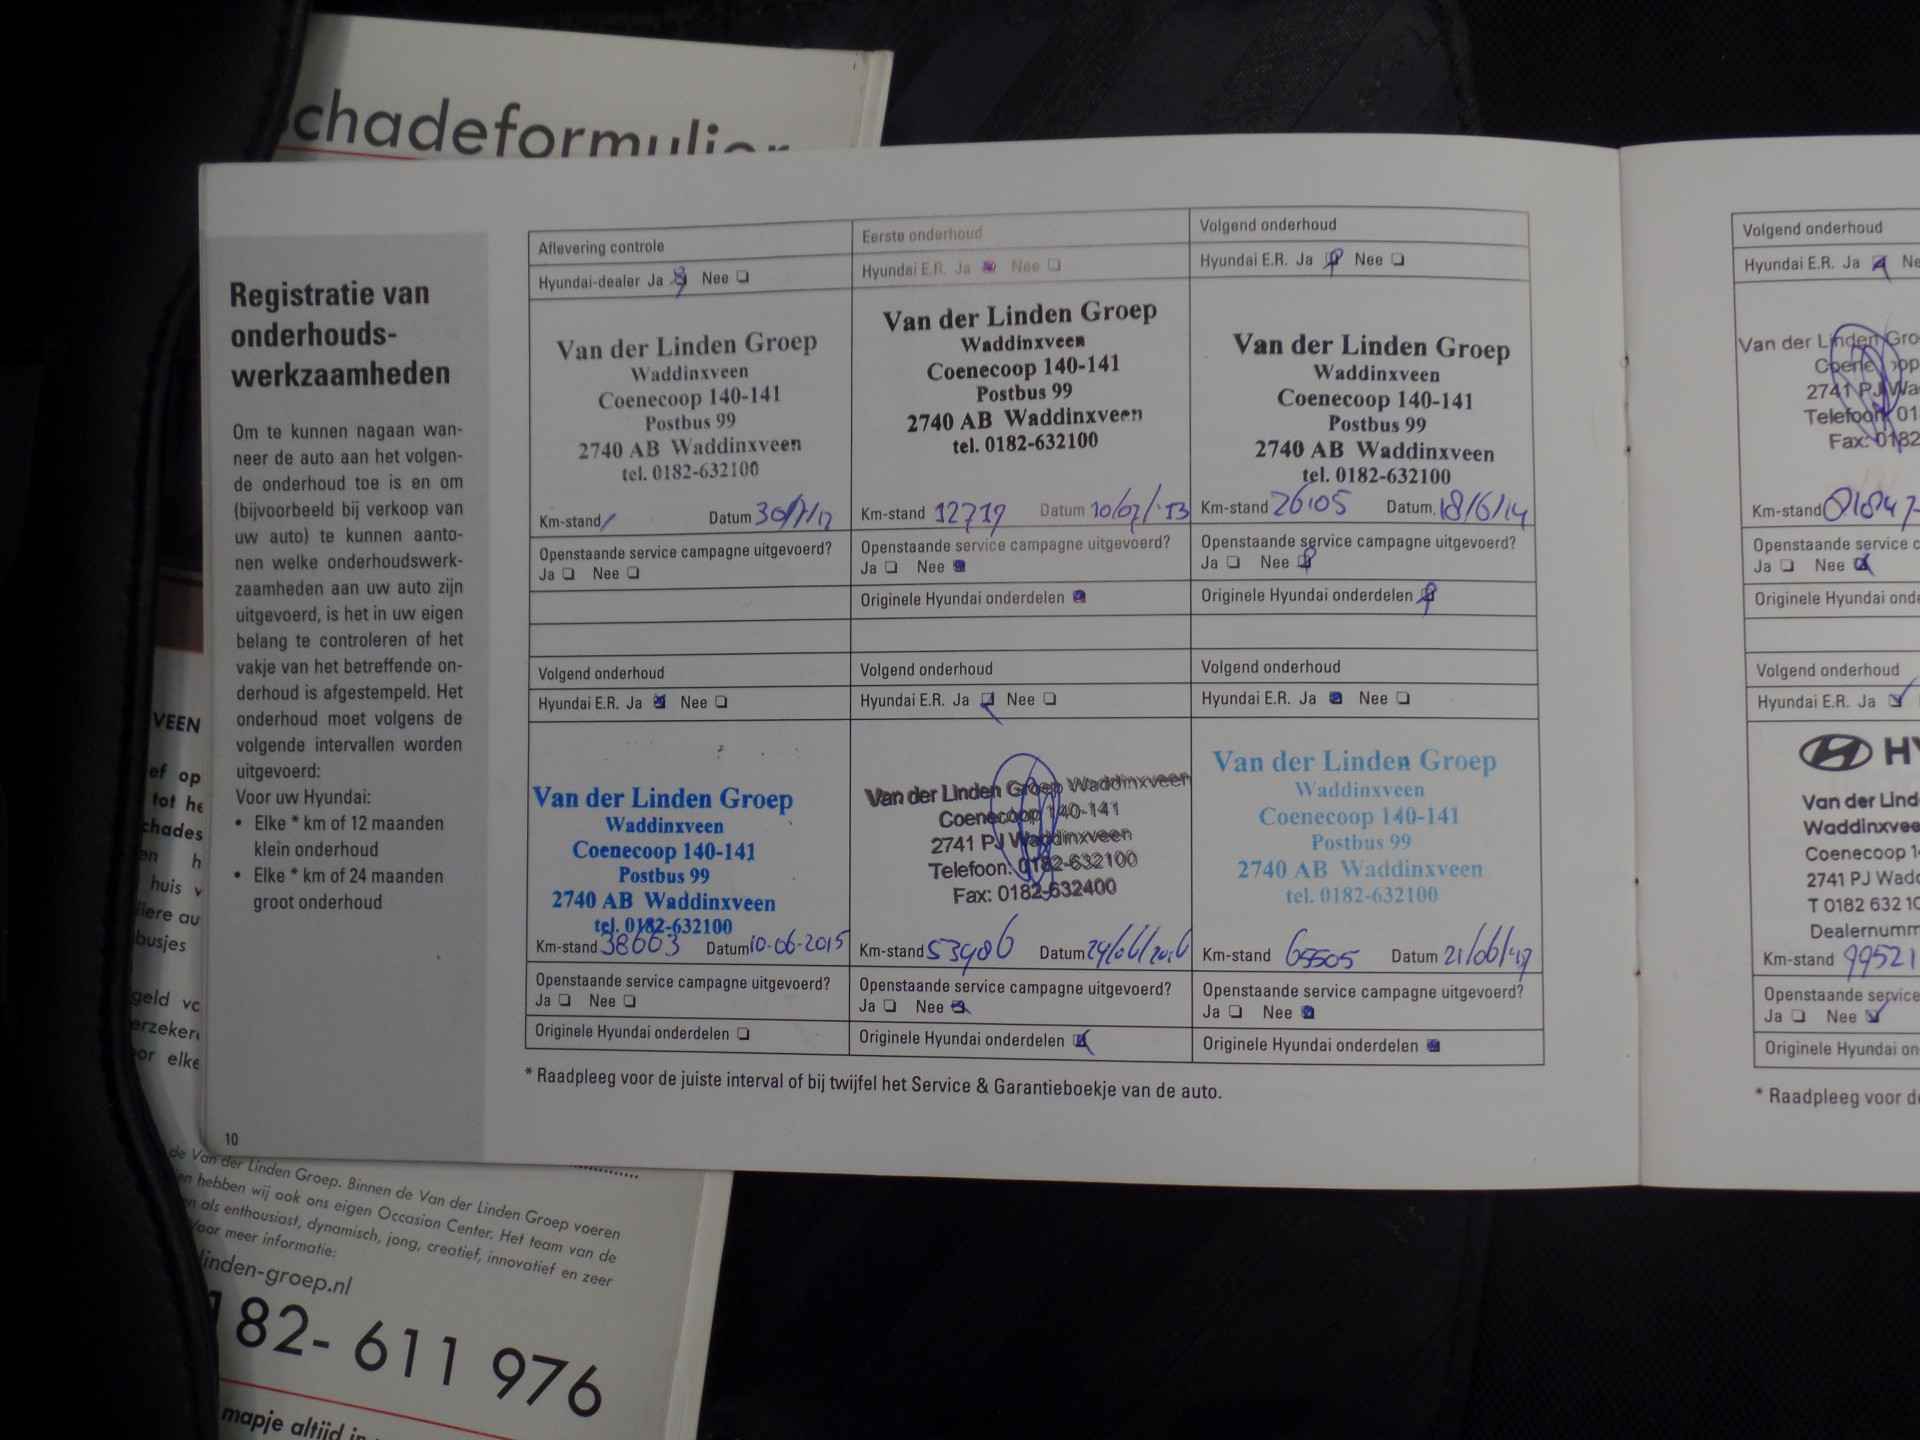 chadeformulier
Registratie van
onderhouds-
werkzaamheden
Om te kunnen nagaan wan-
neer de auto aan het volgen-
de onderhoud toe is en om
(bijvoorbeeld bij verkoop van
uw auto) te kunnen aanto-
nen welke onderhoudswerk-
zaamheden aan uw auto zijn
uitgevoerd, is het in uw eigen
belang te controleren of het
vakje van het betreffende on-
derhoud is afgestempeld. Het
onderhoud moet volgens de
volgende intervallen worden
uitgevoerd:
Voor uw Hyundai:
• Elke * km of 12 maanden
klein onderhoud
• Elke * km of 24 maanden
groot onderhoud
10
Aflevering controle
Hyundai-dealer Ja Nee
Van der Linden Groep
Waddinxveen
Coenecoop 140-141
Postbus 99
2740 AB Waddinxveen
tel. 0182-632100
Km-stand / Datum
Openstaande service campagne uitgevoerd?
Ja Nee
Eerste onderhoud
Hyundai E.R. Ja Nee
Van der Linden Groep
Waddinxveen
Coenecoop 140-141
Postbus 99
2740 AB Waddinxveen
tel. 0182-632100
Km-stand 12719 Datum 10/07/'13
Openstaande service campagne uitgevoerd?
Ja Nee
Originele Hyundai onderdelen
Volgend onderhoud
Hyundai E.R. Ja Nee
Van der Linden Groep
Waddinxveen
Coenecoop 140-141
Postbus 99
2740 AB Waddinxveen
tel. 0182-632100
Km-stand 26105 Datum. 18/6/14
Openstaande service campagne uitgevoerd?
Ja Nee
Originele Hyundai onderdelen
Volgend onderhoud
Hyundai E.R. Ja Nee
Van der Linden Groep
Waddinxveen
Coenecoop 140-141
Postbus 99
2740 AB Waddinxveen
tel. 0182-632100
Km-stand 38663 Datum 10-06-2015
Openstaande service campagne uitgevoerd?
Ja Nee
Originele Hyundai onderdelen
Volgend onderhoud
Hyundai E.R. Ja Nee
Van der Linden Groep Waddinxveen
Coenecoop 140-141
2741 PJ Waddinxveen
Telefoon: 0182-632100
Fax: 0182-632400
Km-stand 53486 Datum
Openstaande service campagne uitgevoerd?
Ja Nee
Originele Hyundai onderdelen
Volgend onderhoud
Hyundai E.R. Ja Nee
Van der Linden Groep
Waddinxveen
Coenecoop 140-141
Postbus 99
2740 AB Waddinxveen
tel. 0182-632100
Km-stand 65505 Datum 21/06/'17
Openstaande service campagne uitgevoerd?
Ja Nee
Originele Hyundai onderdelen
* Raadpleeg voor de juiste interval of bij twijfel het Service & Garantieboekje van de auto.
Volgend onderhoud
Hyundai E.R. Ja Ne
Van der Linden Gro
2741 PJ Wa
Telefoon 01
Fax: 0182
Km-stand
Openstaande service c
Ja Nee
Originele Hyundai onde
Volgend onderhoud
Hyundai E.R. Ja
HY
Van der Lind
Waddinxvee
Coenecoop 1
2741 PJ Wadd
T 0182 632 10
Dealernumm
Km-stand 99521
Openstaande service
Ja Nee
Originele Hyundai on
* Raadpleeg voor d
VEEN
ef op
tot he
chades
en h
huis v
liere au
busjes
geld vo
erzeker
or elke
de Van der Linden Groep. Binnen de Van der Linden Groep voeren
en hebben wij ook ons eigen Occasion Center. Het team van de
en als enthousiast, dynamisch, jong, creatief, innovatief en zeer
Voor meer informatie:
linden-groep.nl
182- 611 976
mapje altijd in